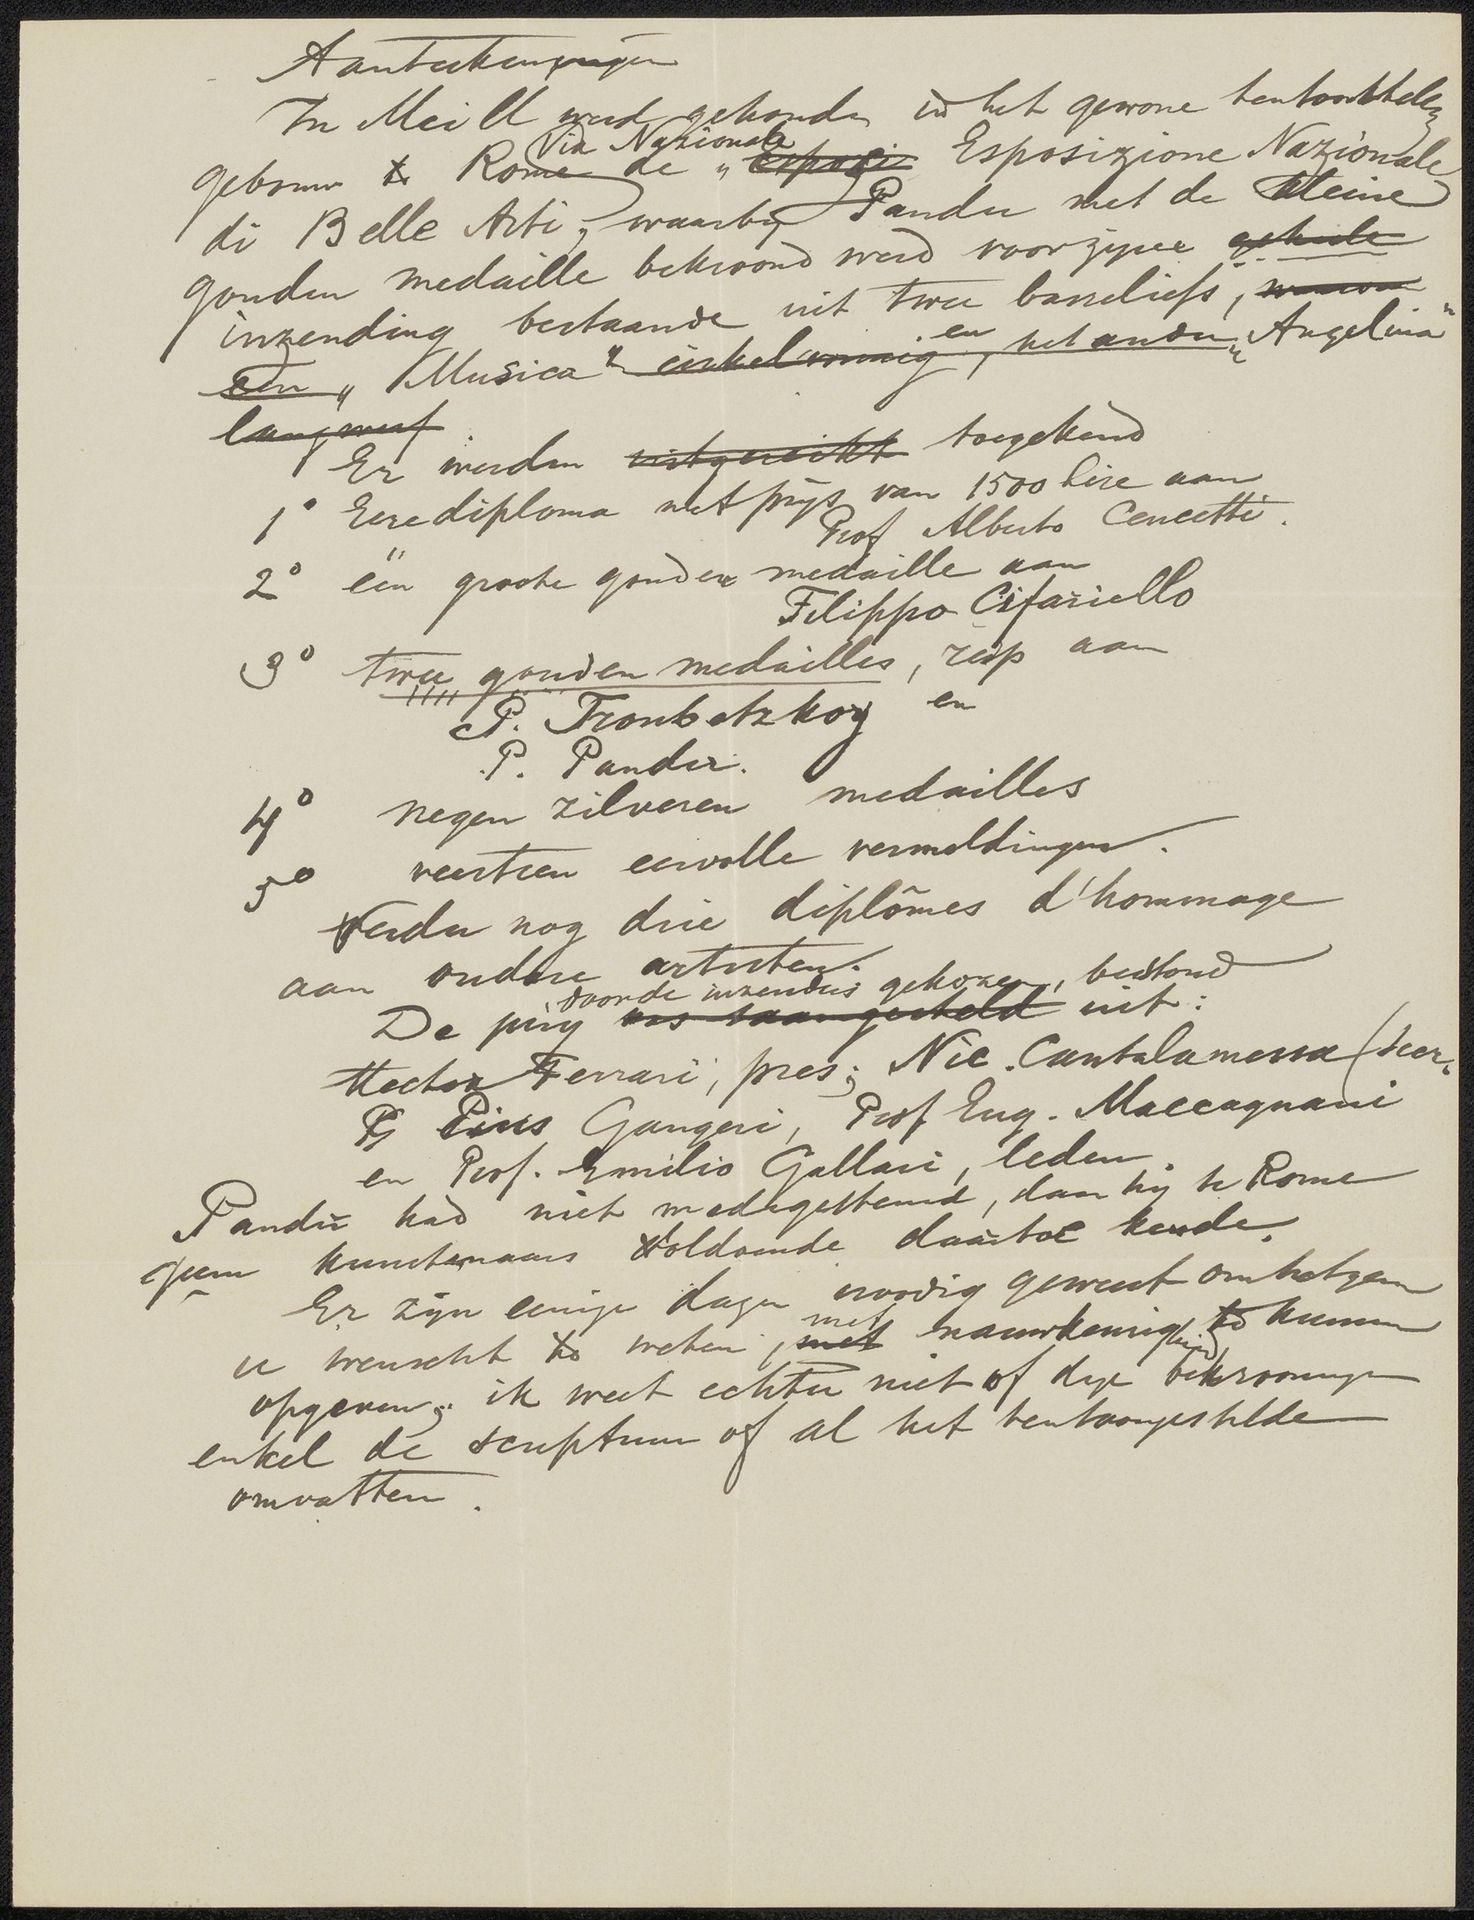 Aanteekeningen
In Mei ll werd gehouden in het gewone tentoonstellings
gebouw te Rome Via Nazionale de „ Esposi Esposizione Nazionale
di Belle Arti, waarby Pander met de kleine
gouden medaille bekroond werd voor zyne geheele
inzending bestaande uit twee basreliefs, waarvan
één „Musica" cirkelvormig en, het andere „Angelina"
langwerp
Er werden uitgereikt toegekend
1° Eerediploma met prijs van 1500 lire aan
Prof Alberto Cencetti.
2° één groote gouden medaille aan
Filippo Cifariello
3° twee gouden medailles, resp aan
P. Troubetzkoy en
P. Pander.
4° negen zilveren medailles
5° veertien eervolle vermeldingen.
Verder nog drie diplômes d'hommage
aan oudere artisten.
De jury door de inzenders gekozen, bestond
was saamgesteld uit:
Hector Ferrari, pres; Nic. Cantalamessa (secr.
Pius Gangeri, Prof Eug. Maccagnani
en Prof. Emilio Gallari, leden.
Pander had niet medegestemd, daar hij te Rome
geen kunstenaars voldoende daartoe kende.
Er zijn eenige dagen noodig geweest om hetgeen
u wenscht te weten, met met nauwkeurigheid te kunnen
opgeven; ik weet echter niet of deze bekrooningen
enkel de sculptuur of al het tentoongestelde
omvatten.